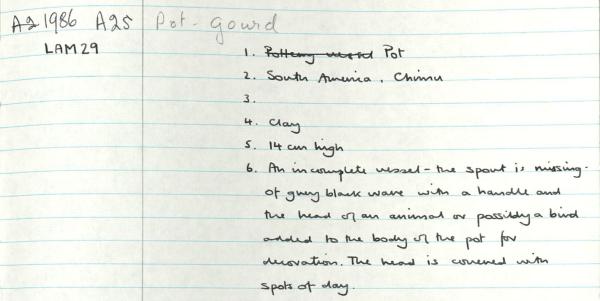 A21986 A25 Pot-gourd
LAM29
1. Pottery vessel Pot
2. South America, Chimu
3.
4. Clay
5. 14 cm high
6. An incomplete vessel - the spout is missing -
of grey black ware with a handle and
the head of an animal or possibly a bird
added to the body of the pot for
decoration. The head is covered with
spots of clay.